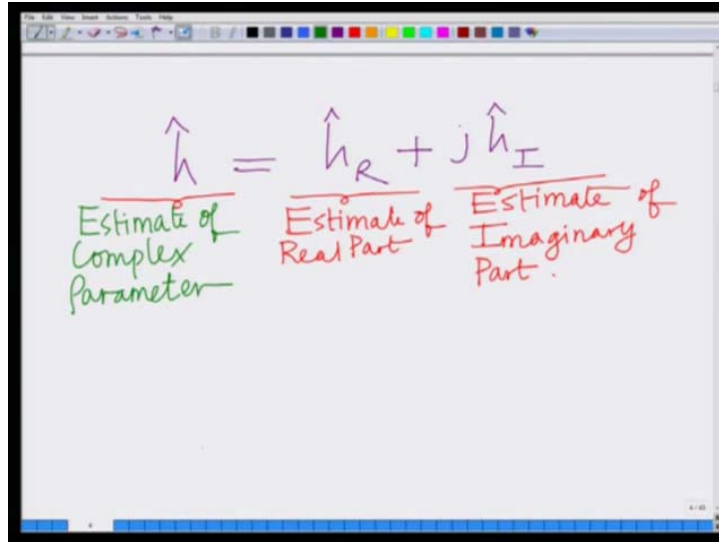 File Edit View Insert Actions Tools Help
ĥ = ĥ_R + j ĥ_I
Estimate of
Complex
Parameter
Estimate of
Real Part
Estimate of
Imaginary
Part.
4 / 40
4